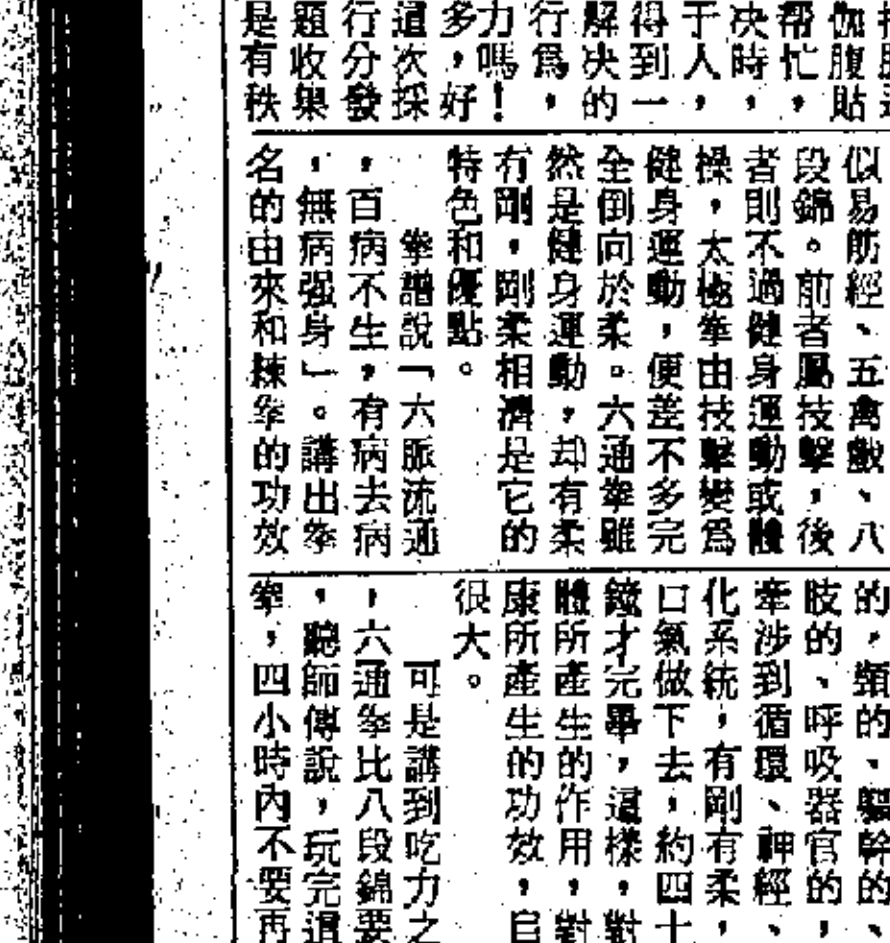 伽腹貼
帮忙，
决時，
于人，
得到一
解决的
行爲，
力嗎！
多，好
這次採
行分發
題收集
是有秩
似易筋經、五禽戲、八
段錦。前者屬技擊，後
者則不過健身運動或體
操，太極拳由技擊變爲
健身運動，便差不多完
全倒向於柔。六通拳雖
然是健身運動，却有柔
有剛，剛柔相濟是它的
特色和優點。
拳譜說「六脈流通
，百病不生，有病去病
，無病强身」。講出拳
名的由來和練拳的功效
的，頸的、軀幹的、
肢的、呼吸器官的，
牽涉到循環、神經、
化系統，有剛有柔，
口氣做下去，約四十
鐘才完畢，這樣，對
體所產生的作用，對
康所產生的功效，自
很大。
可是講到吃力之
，六通拳比八段錦要
，聽師傅說，玩完這
拳，四小時內不要再